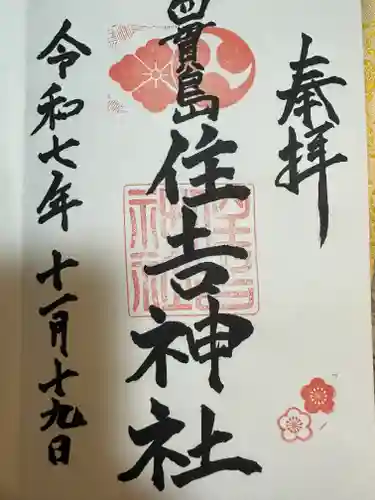 奉拝
四貫島
住吉神社
令和七年十一月十九日